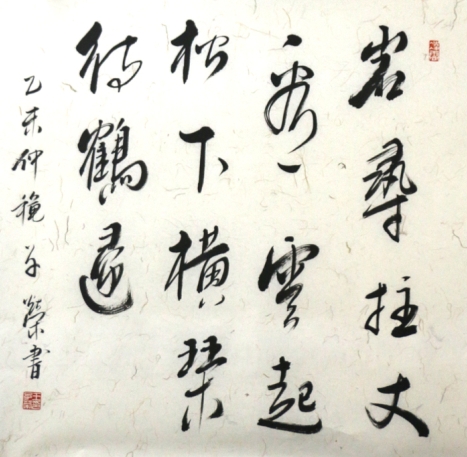 岩尋拄丈
看雲起
松下橫琴
待鶴還
乙未仲穐榮書